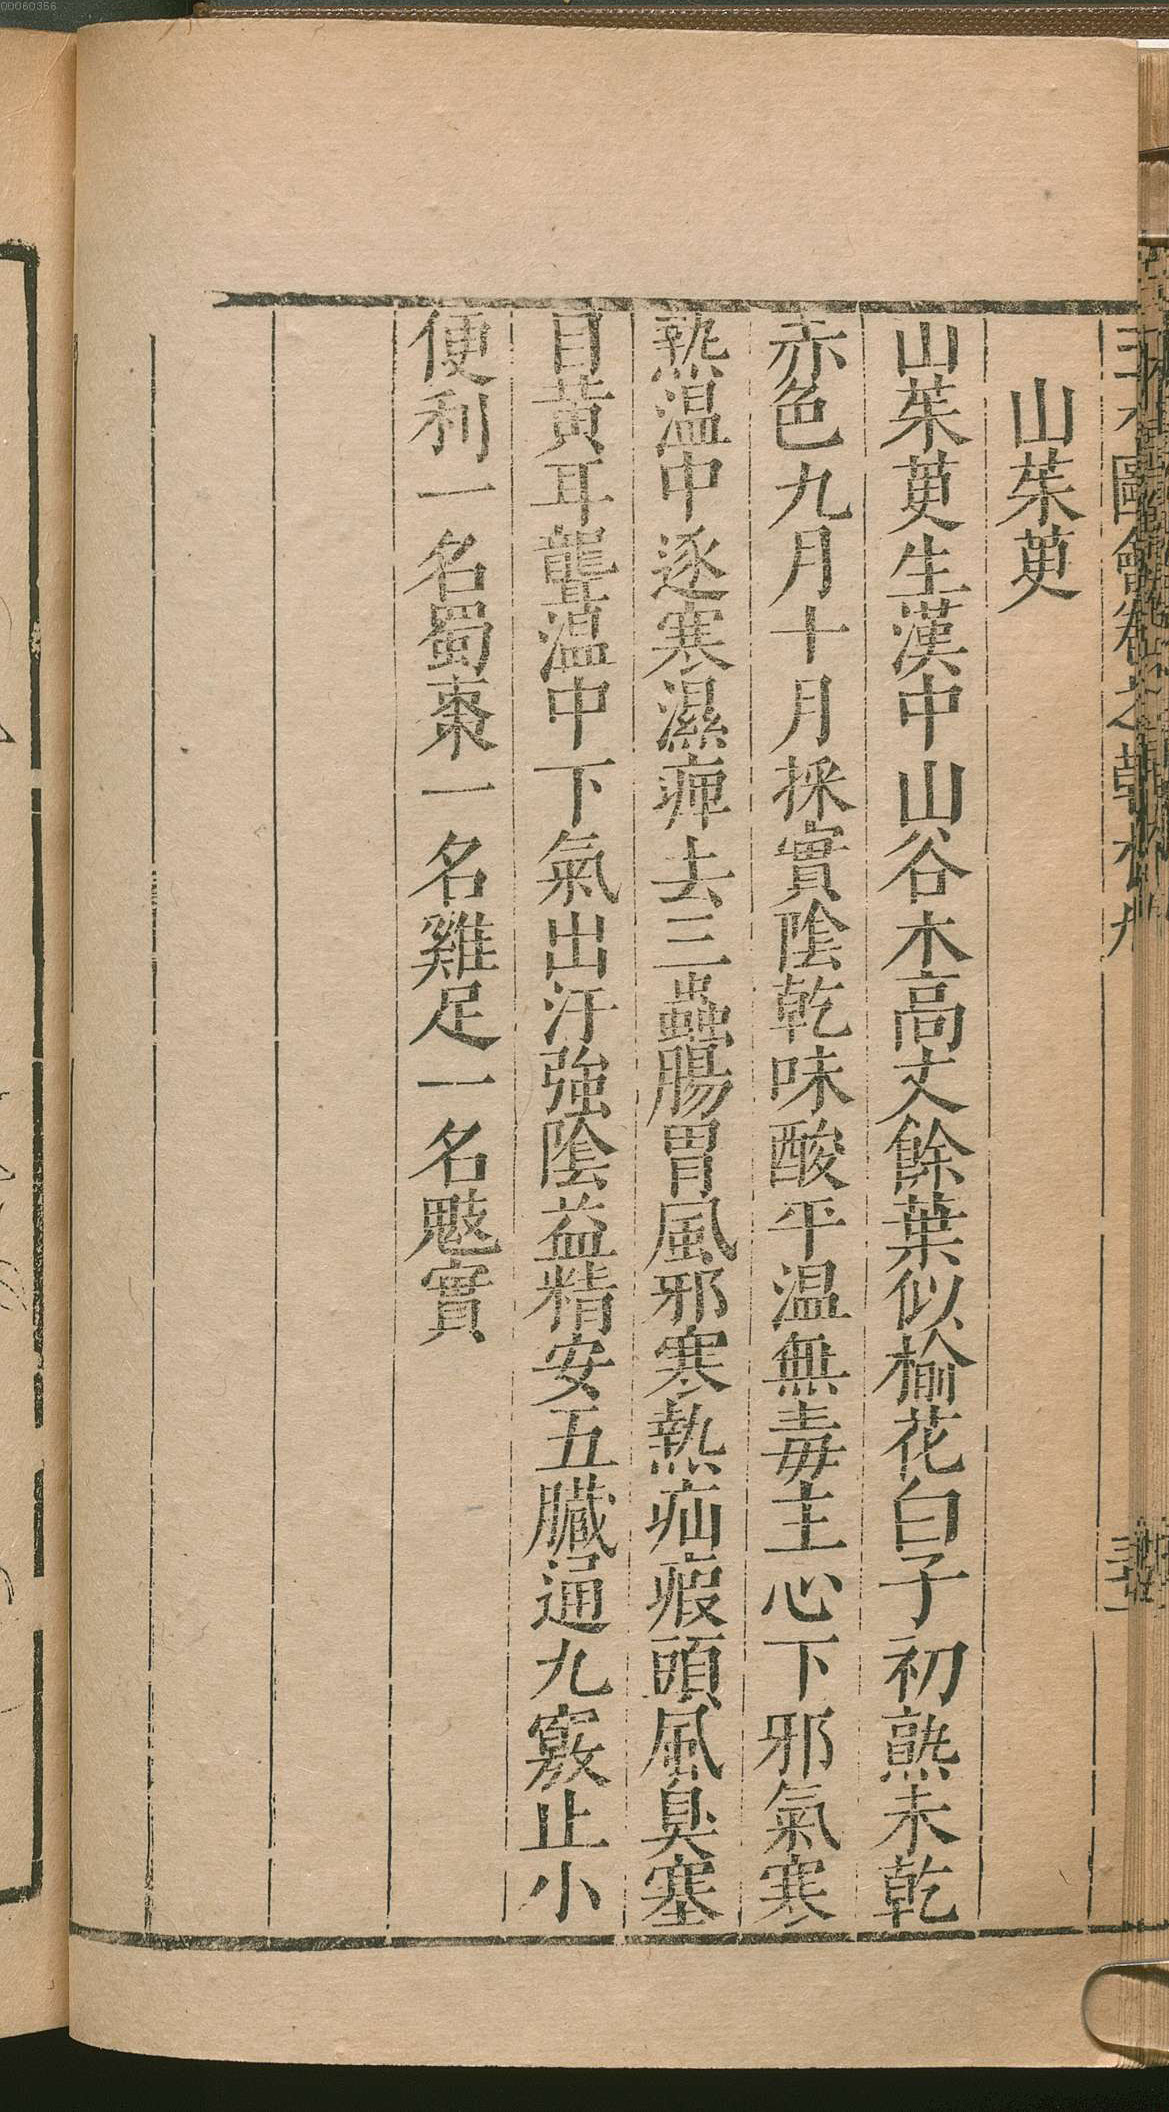 00060356
山茱萸
山茱萸生漢中山谷木高丈餘葉似榆花白子初熟未乾
赤色九月十月採實陰乾味酸平温無毒主心下邪氣寒
熱温中逐寒濕痺去三蟲腸胃風邪寒熱疝瘕頭風臭塞
目黃耳聾温中下氣出汗強陰益精安五臟通九竅止小
便利一名蜀棗一名雞足一名鬾實